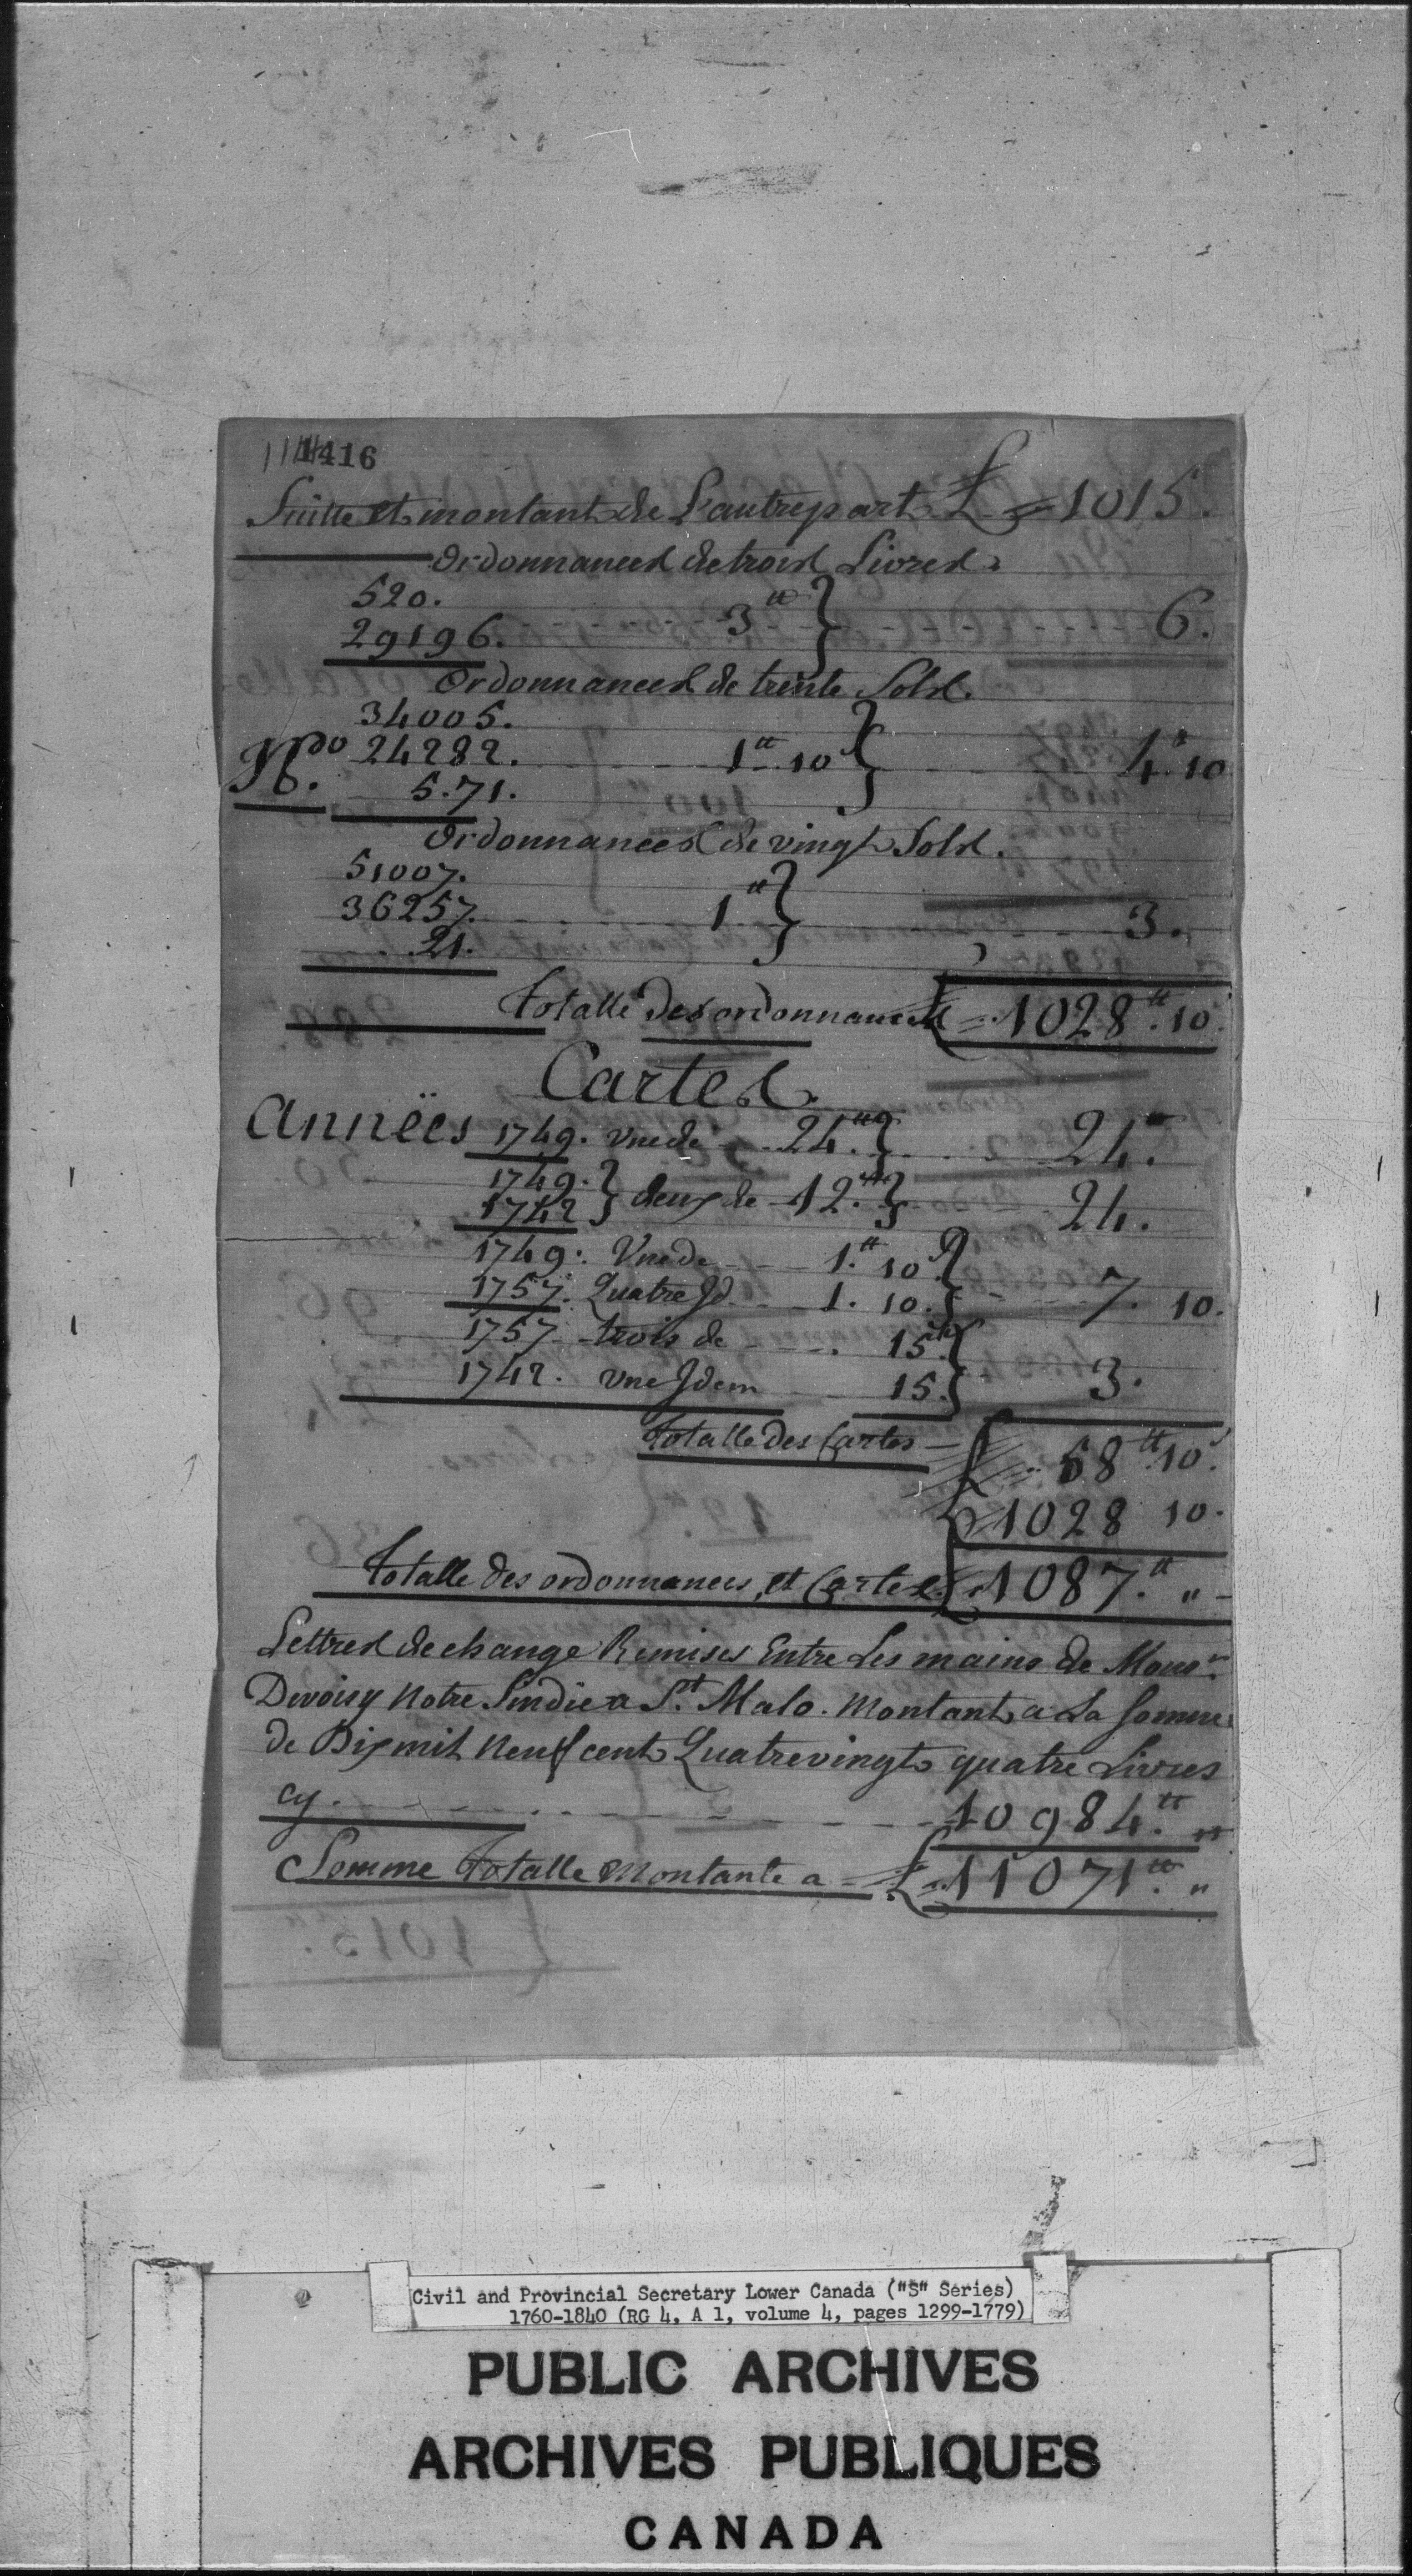 1416
Suitte et montant de L'autre part £ = 1015.
Ordonnances de trois Livres.
520.
29196. 3tt } 6.
Ordonnances de trente Sols.
34005.
No 24282. 1tt 10s } 4tt 10
5.71.
Ordonnances de vingt Sols.
51007.
36257. 1tt } 3.
21.
Totalle Des ordonnances £ = 1028tt. 10s
Cartes.
Annëes 1749. Une de 24tt } 24.tt
1749. }
1742 } deux de 12.tt } 24.
1749. Une de 1.tt 10s }
1757. Quatre Jd. 1. 10. } 7. 10.
1757 trois de 15s }
1742. Une Jdem 15. } 3.
Totalle des Cartes £ = 58tt 10s.
1028 10.
Totalle des ordonnances, et Cartes £ 1087.tt "
Lettres de change Remises Entre Les mains de Monsr.
Devoisy Notre Sindic a St. Malo. Montant a La Somme
de Dix mil Neuf cent Quatrevingt quatre Livres
cy. 10984.tt "
Somme Totalle Montante a = £ 11071.tt "
Civil and Provincial Secretary Lower Canada ("S" Series)
1760-1840 (RG 4, A 1, volume 4, pages 1299-1779)
PUBLIC ARCHIVES
ARCHIVES PUBLIQUES
CANADA